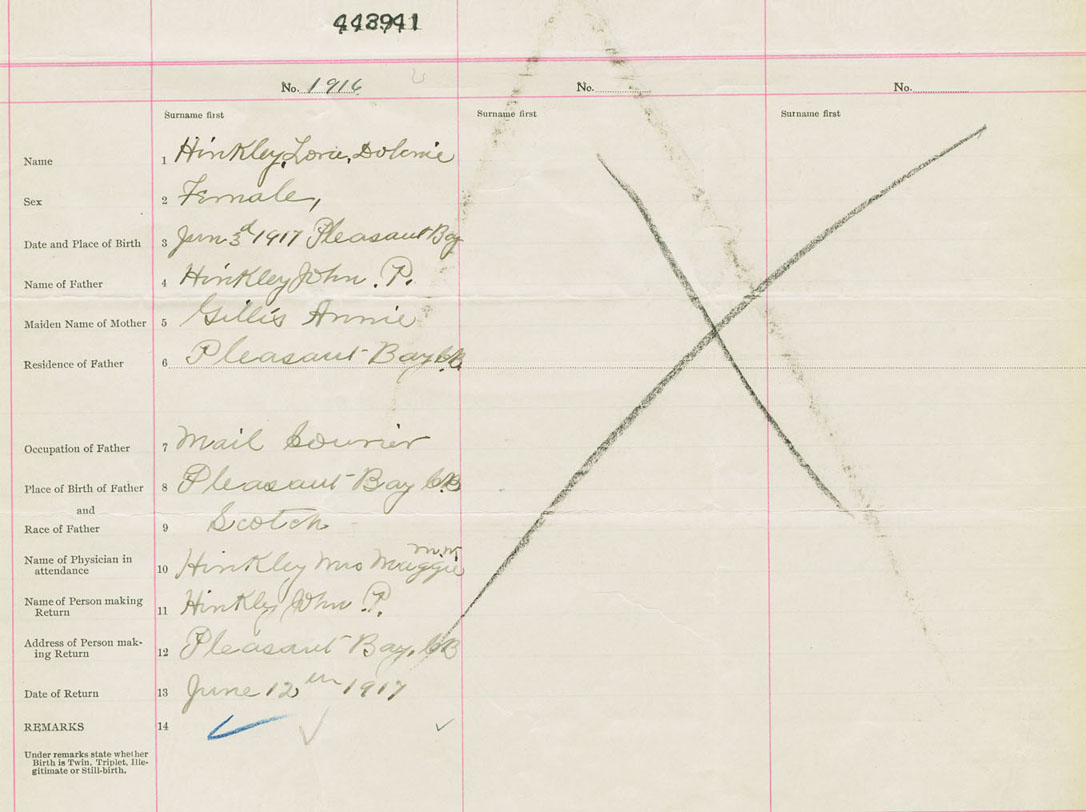 443941
No. 1916 No. No.
Surname first Surname first Surname first
Name 1 Hinkley,
Sex 2 Female,
Date and Place of Birth 3 3d 1917 Pleasant Bay
Name of Father 4 Hinkley John . P.
Maiden Name of Mother 5 Gillis Annie
Residence of Father 6 Pleasant Bay C.B.
Occupation of Father 7 Mail Courier
Place of Birth of Father 8 Pleasant Bay C.B
and
Race of Father 9 Scotch
Name of Physician in
attendance 10 Hinkley Mrs Maggie
Name of Person making
Return 11 Hinkley John . P.
Address of Person mak-
ing Return 12 Pleasant Bay, C.B
Date of Return 13 June 12th 1917
REMARKS 14
Under remarks state whether
Birth is Twin, Triplet, Ille-
gitimate or Still-birth.